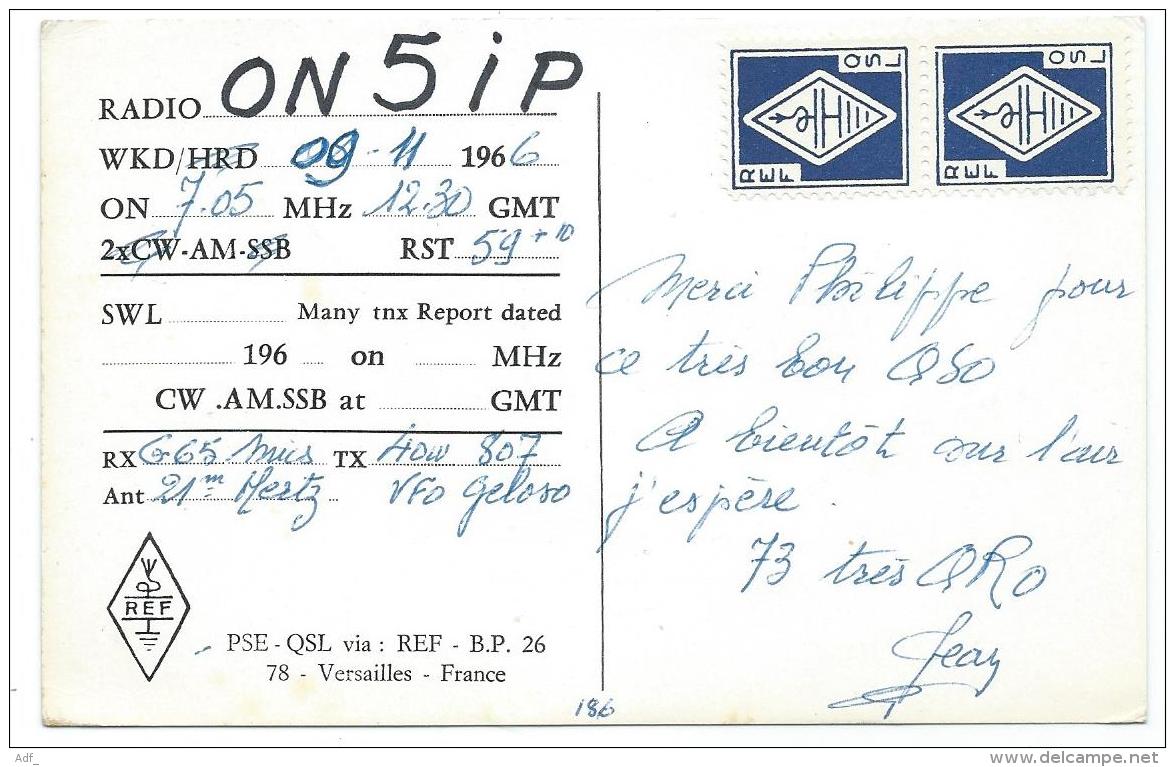 RADIO ON5iP
WKD/HRD 09-11 1966
ON 7.05 MHz 12.30 GMT
2xCW-AM-SSB RST 59+10
SWL Many tnx Report dated
196 on MHz
CW .AM.SSB at GMT
RX G65 TX 40w 807
Ant 21m Hertz VFO Geloso
REF
PSE - QSL via : REF - B.P. 26
78 - Versailles - France
QSL
REF
QSL
REF
Merci Philippe pour
ce très bon QSO
A bientôt sur l'air
j'espère.
73 très QRO
Jean
186
Adf_
delcampe.net